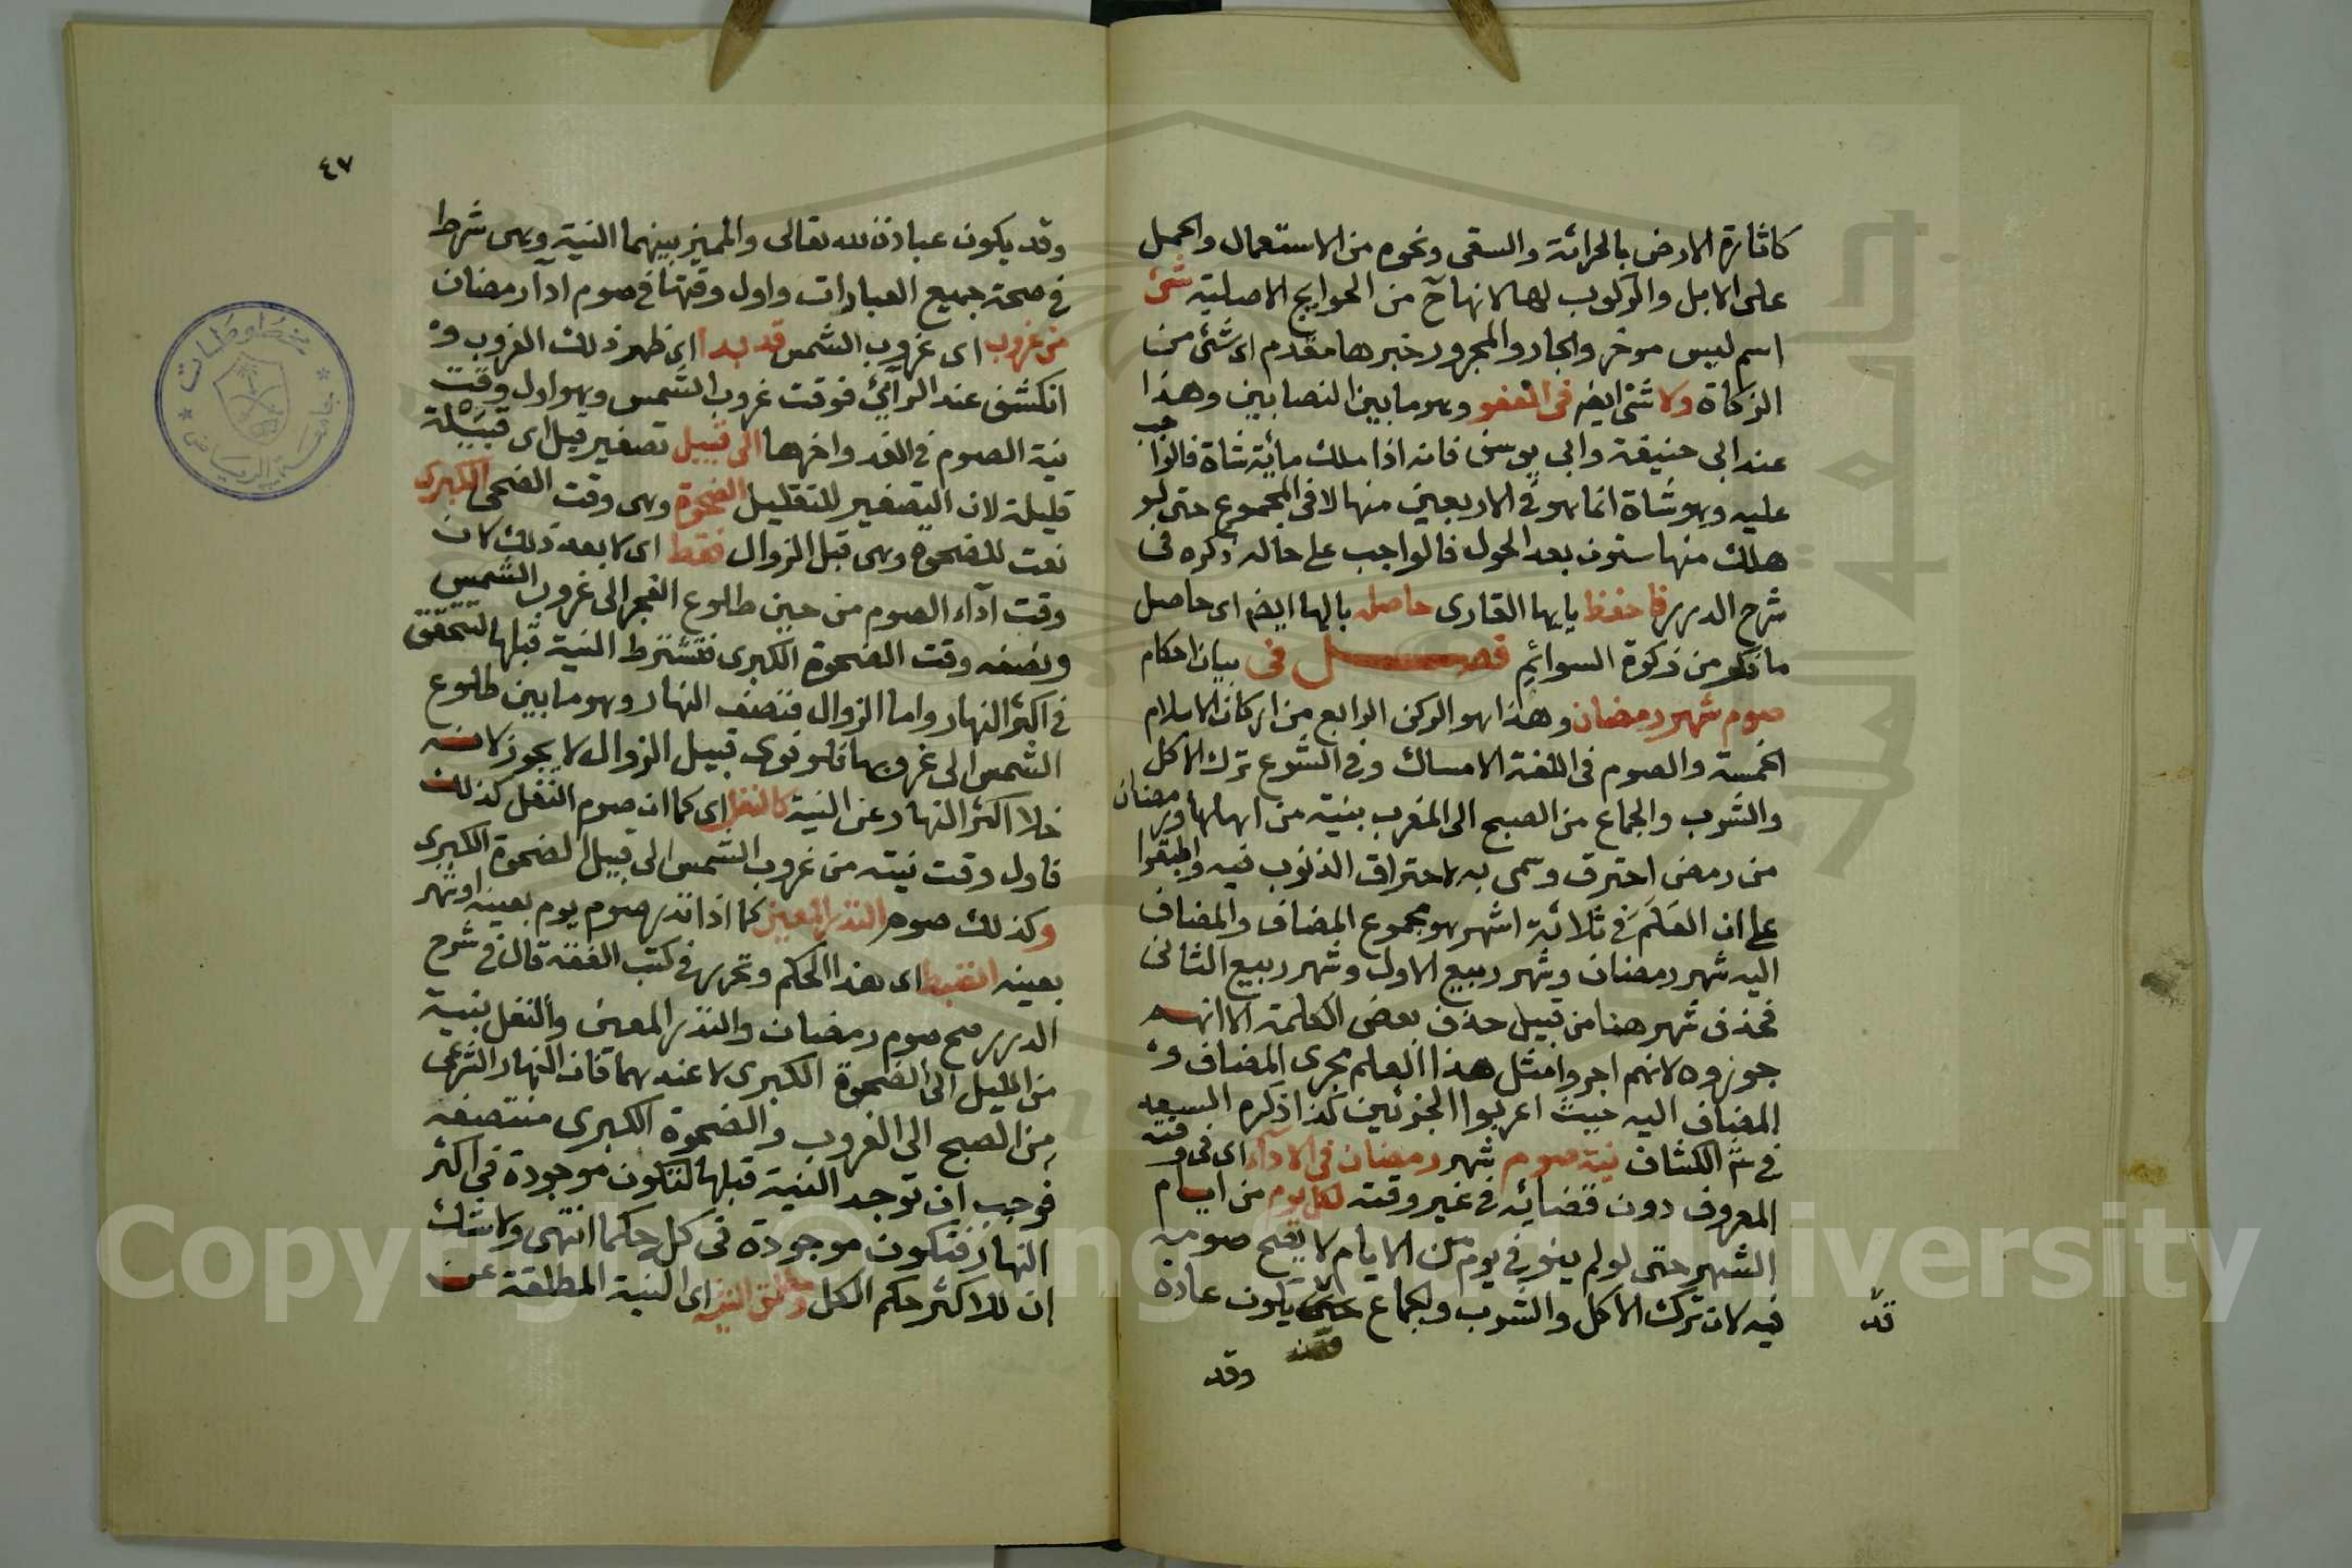 كاثارة الارض بالحراثة والسقى ونحوه من الاستعمال والحمل
على الابل والركوب لها لانها ح من الحوايج الاصلية شئ
اسم ليس موخر والجار والمجرور خبرها مقدم اى شئ من
الزكاة ولا شئ ايض فى العفو وهو ما بين النصابين وهذا
عند ابى حنيفة وابى يوسف فانه اذا ملك مائة شاة فالواجب
عليه وهو شاة انما هو فى الاربعين منها لا فى المجموع حتى لو
هلك منها ستون بعد الحول فالواجب على حاله ذكره فى
شرح الدرر فاحفظ يا ايها القارى حاصله بالها ايض اى حاصل
ما ذكر من زكوة السوائم فصل فى بيان احكام
صوم شهر رمضان وهذا هو الركن الرابع من اركان الاسلام
الخمسة والصوم فى اللغة الامساك وفى الشرع ترك الاكل
والشرب والجماع من الصبح الى المغرب بنية من اهلها ورمضان
من رمض احترق وسمى به لاحتراق الذنوب فيه واطبقوا
على ان العلم فى ثلاثة اشهر هو مجموع المضاف والمضاف
اليه شهر رمضان وشهر ربيع الاول وشهر ربيع الثانى
فحذف شهر هنا من قبيل حذف بعض الكلمة الا انهم
جوزوه لانهم اجروا مثل هذا العلم مجرى المضاف و
المضاف اليه حيث اعربوا الجزئين كذا ذكره السعد
فى الكشاف نية صوم شهر رمضان فى الاداء اى فى وقته
المعروف دون قضائه فى غير وقته لكل يوم من ايام
الشهر حتى لو لم ينو فى يوم من الايام لا يصح صومه
فيه لان ترك الاكل والشرب والجماع يكون عادة
قد
وقد
٤٧
وقد يكون عبادة لله تعالى والمميز بينهما النية وهى شرط
فى صحة جميع العبادات واول وقتها فى صوم اداء رمضان
من غروب اى غروب الشمس قد بدا اى ظهر ذلك الغروب و
انكشف عند الرائى فوقت غروب الشمس وهو اول وقت
نية الصوم فى الغد واخرها الى قبيل تصغير قبل اى قبيلة
قليلة لان التصغير للتقليل الضحوة وهى وقت الضحى الكبرى
نعت للضحوة وهى قبل الزوال فقط اى لا بعد ذلك لان
وقت اداء الصوم من حين طلوع الفجر الى غروب الشمس
ونصفه وقت الضحوة الكبرى فتشترط النية قبلها لتتحقق
فى اكثر النهار واما الزوال فنصف النهار وهو ما بين طلوع
الشمس الى غروبها فلو نوى قبيل الزوال لا يجوز لانه
خلا اكثر النهار عن النية كالنفل اى كما ان صوم النفل كذلك
فاول وقت نيته من غروب الشمس الى قبيل الضحوة الكبرى
وكذلك صوم النذر المعين كما اذا نذر صوم يوم بعينه او شهر
بعينه انضبط اى هذا الحكم وتحرر فى كتب الفقه قال فى شرح
الدرر صح صوم رمضان والنذر المعين والنفل بنية
من الليل الى الضحوة الكبرى لا عندهما فان النهار الشرعى
من الصبح الى الغروب والضحوة الكبرى منتصفه
فوجب ان توجد النية قبلها لتكون موجودة فى اكثر
النهار فتكون موجودة فى كل حكما انتهى ولا شك
ان للاكثر حكم الكل ومطلق النية اى النية المطلقة عن
مخطوطات
جامعة الرياض
جامعة الملك
Copyright © King Saud University